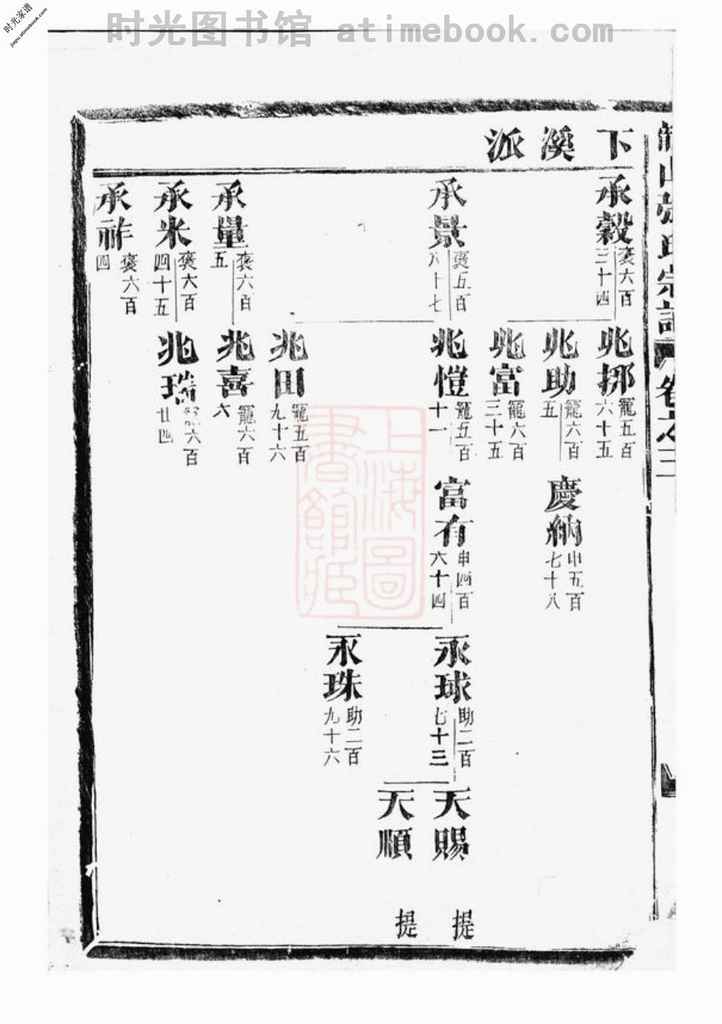 时光图书馆 atimebook.com
时光家谱
jiapu.atimebook.com
張氏宗譜 卷之三
下溪派
承穀 褒六百三十四
承景 褒五百八十七
承量 褒六百五
承米 褒六百四十五
承祚 褒六百四
兆挪 寵五百六十五
兆助 寵六百五
兆富 寵六百三十五
兆愷 寵五百十一
兆田 寵五百九十六
兆喜 寵六百六
兆瑞 六百廿四
慶納 申五百七十八
富有 申四百六十四
永球 助二百七十三
永珠 助二百九十六
天賜 提
天順 提
上海圖書館藏